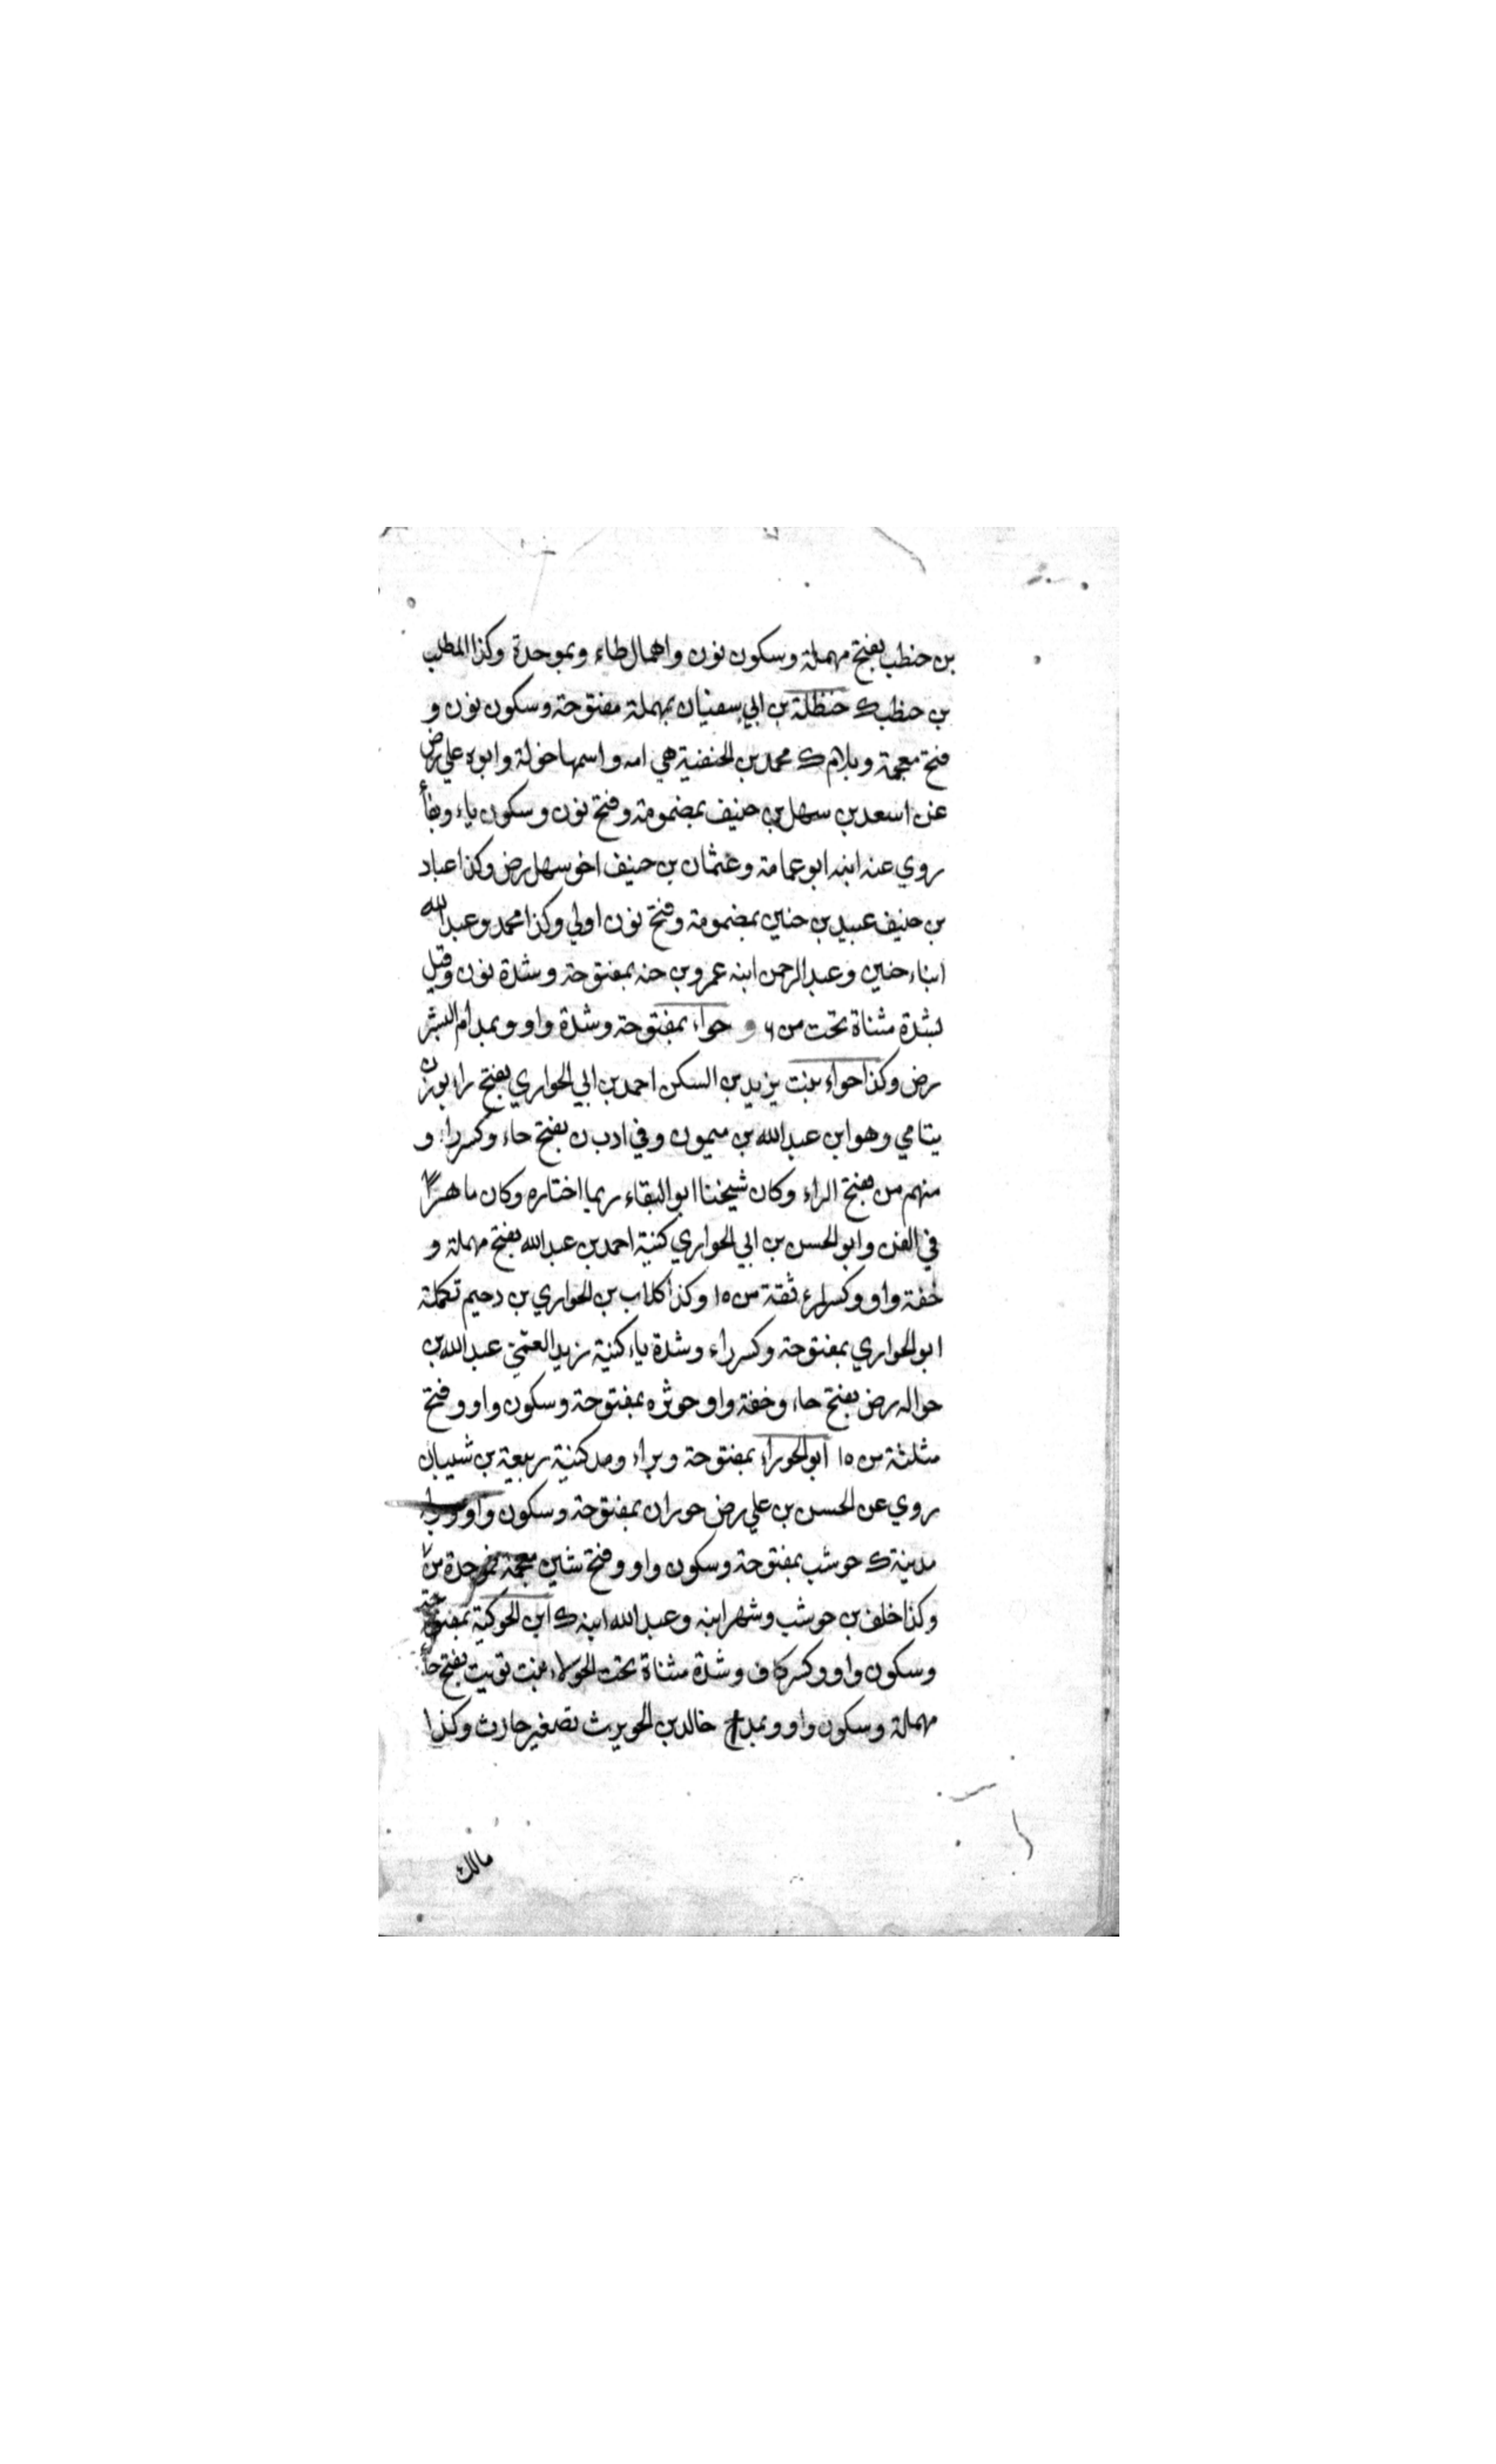 بن حنطب بفتح مهملة وسكون نون واهمال طاء وبموحدة وكذا المطلب
بن حنطب ك حنظلة بن ابي سفيان بمهملة مفتوحة وسكون نون و
فتح معجمة وبلام ك محمد بن الحنفية هي امه واسمها خولة وابوه علي رض
عن اسعد بن سهل بن حنيف بمضمومة وفتح نون وسكون ياء وبفأ
روي عنه ابنه ابو عمامة وعثمان بن حنيف اخو سهل رض وكذا عباد
بن حنيف عبيد بن حنين بمضمومة وفتح نون اولي وكذا محمد وعبد الله
ابناء حنين وعبد الرحمن ابنه عمرو بن حنه بمفتوحة وشدة نون وقيل
بشدة مثناة تحت من ٦ و حواء بمفتوحة وشدة واو وبمد ام البشر
رض وكذا حواء بنت يزيد بن السكن احمد بن ابي الحواري بفتح راء بوزن
يتامي وهو ابن عبد الله بن ميمون وفي ادب ن بفتح حاء وكسر راء و
منهم من بفتح الراء وكان شيخنا ابو البقاء ربما اختاره وكان ماهرًا
في الفن وابو الحسن بن ابي الحواري كنية احمد بن عبد الله بفتح مهملة و
خفة واو وكسر راء ثقة من ١٥ وكذا كلاب بن الحواري بن دحيم تكملة
ابو الحواري بمفتوحة وكسر راء وشدة ياء كنية زيد العمّي عبد الله بن
حواله رض بفتح حاء وخفة واو حوثره بمفتوحة وسكون واو وفتح
مثلثة من ١٥ ابو الحوراء بمفتوحة وبراء ومد كنية ربيعة بن شيبان
روي عن الحسن بن علي رض حوران بمفتوحة وسكون واو وبراء
مدينة ك حوشب بمفتوحة وسكون واو وفتح شين معجمة فموحدة من ٧
وكذا خلف بن حوشب وشهر ابنه وعبد الله ابنه ك ابن الحوكية بمفتوحة
وسكون واو وكسر كاف وشدة مثناة تحت الحولاء بنت تويت بفتح حأ
مهملة وسكون واو وبمد خالد بن الحويرث تصغير حارث وكذا
مالك